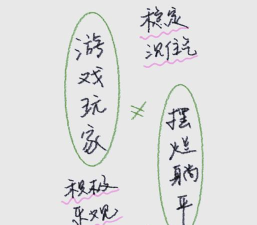 稳定
沉住气
游戏玩家
≠
摆烂躺平
积极
乐观